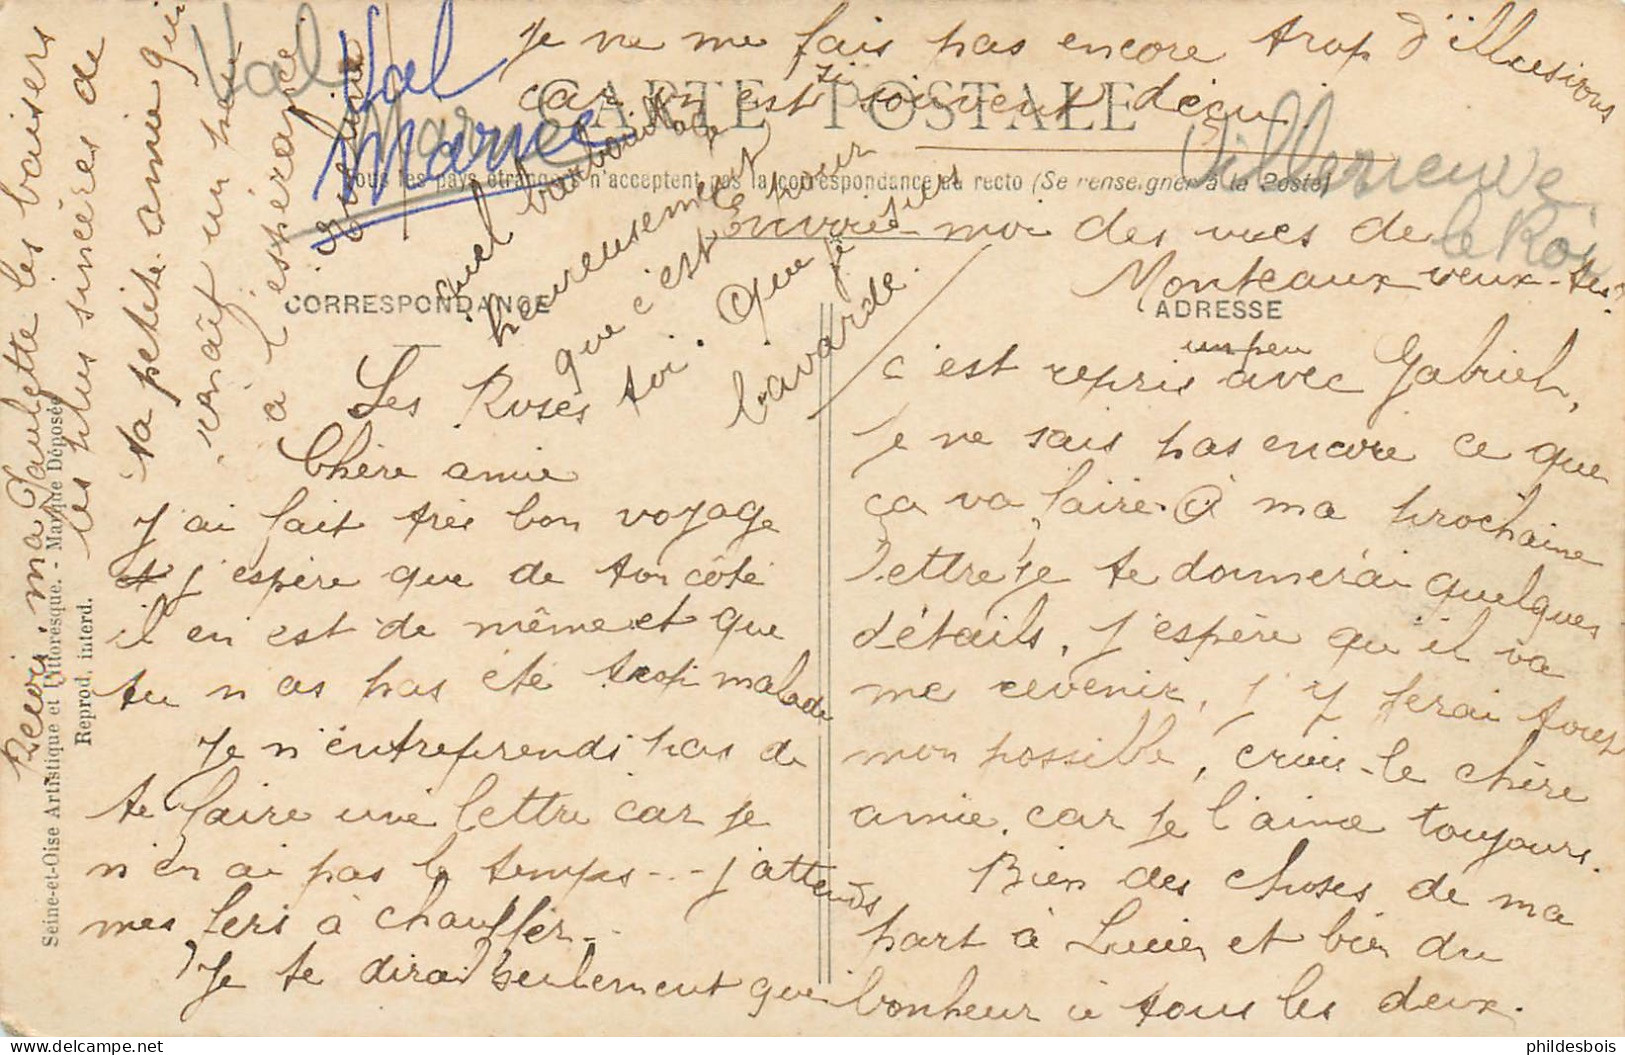 CARTE POSTALE
Tous les pays étrangers n'acceptent pas la correspondance au recto (Se renseigner à la Poste)
CORRESPONDANCE
ADRESSE
Val
Marne
Val
Marne
Villeneuve
le Roi
Les Roses
Chère amie
J'ai fait très bon voyage
et j'espère que de ton côté
il en est de même et que
tu n'as pas été trop malade
Je n'entreprends pas de
te faire une lettre car je
n'en ai pas le temps - - j'attends
mes fers à chauffer - -
Je te dirai seulement que
c'est repris un peu avec Gabriel,
je ne sais pas encore ce que
ça va faire. A ma prochaine
lettre je te donnerai quelques
détails, j'espère qu'il va
me revenir, j'y ferai tout
mon possible, crois-le chère
amie, car je l'aime toujours.
Bien des choses de ma
part à Lucien et bien du
bonheur à tous les deux.
Je ne me fais pas encore trop d'illusions
car on est si souvent déçu.
Envoie-moi des vues de
Monteaux veux-tu?
Reçois ma Paulette les baisers
les plus sincères de
ta petite amie qui
renaît un peu
à l'espérance
Quel barbouillage
heureusement
que c'est pour
toi. Que je suis
bavarde.
Seine-et-Oise Artistique et Pittoresque. - Marque Déposée
Reprod. interd.
phildesbois